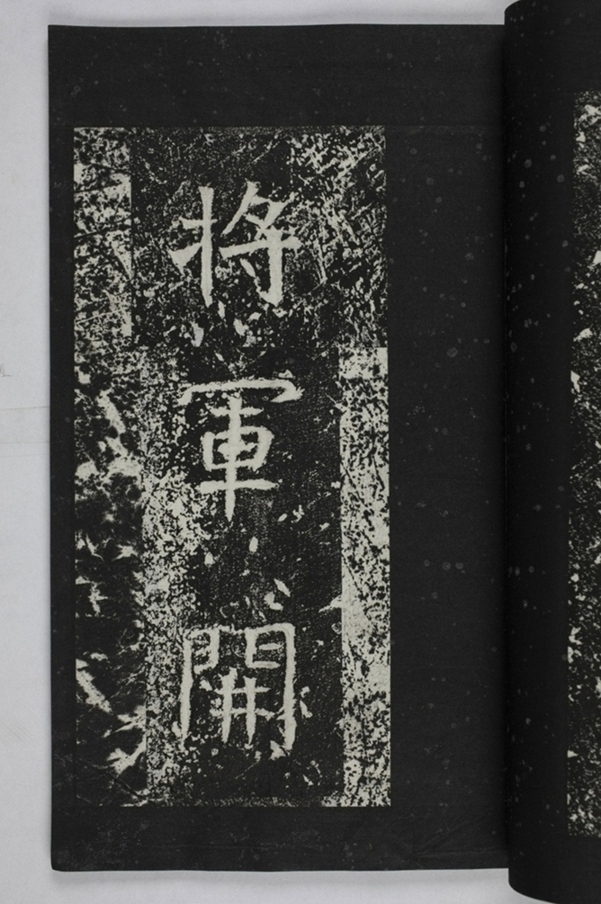 將軍開